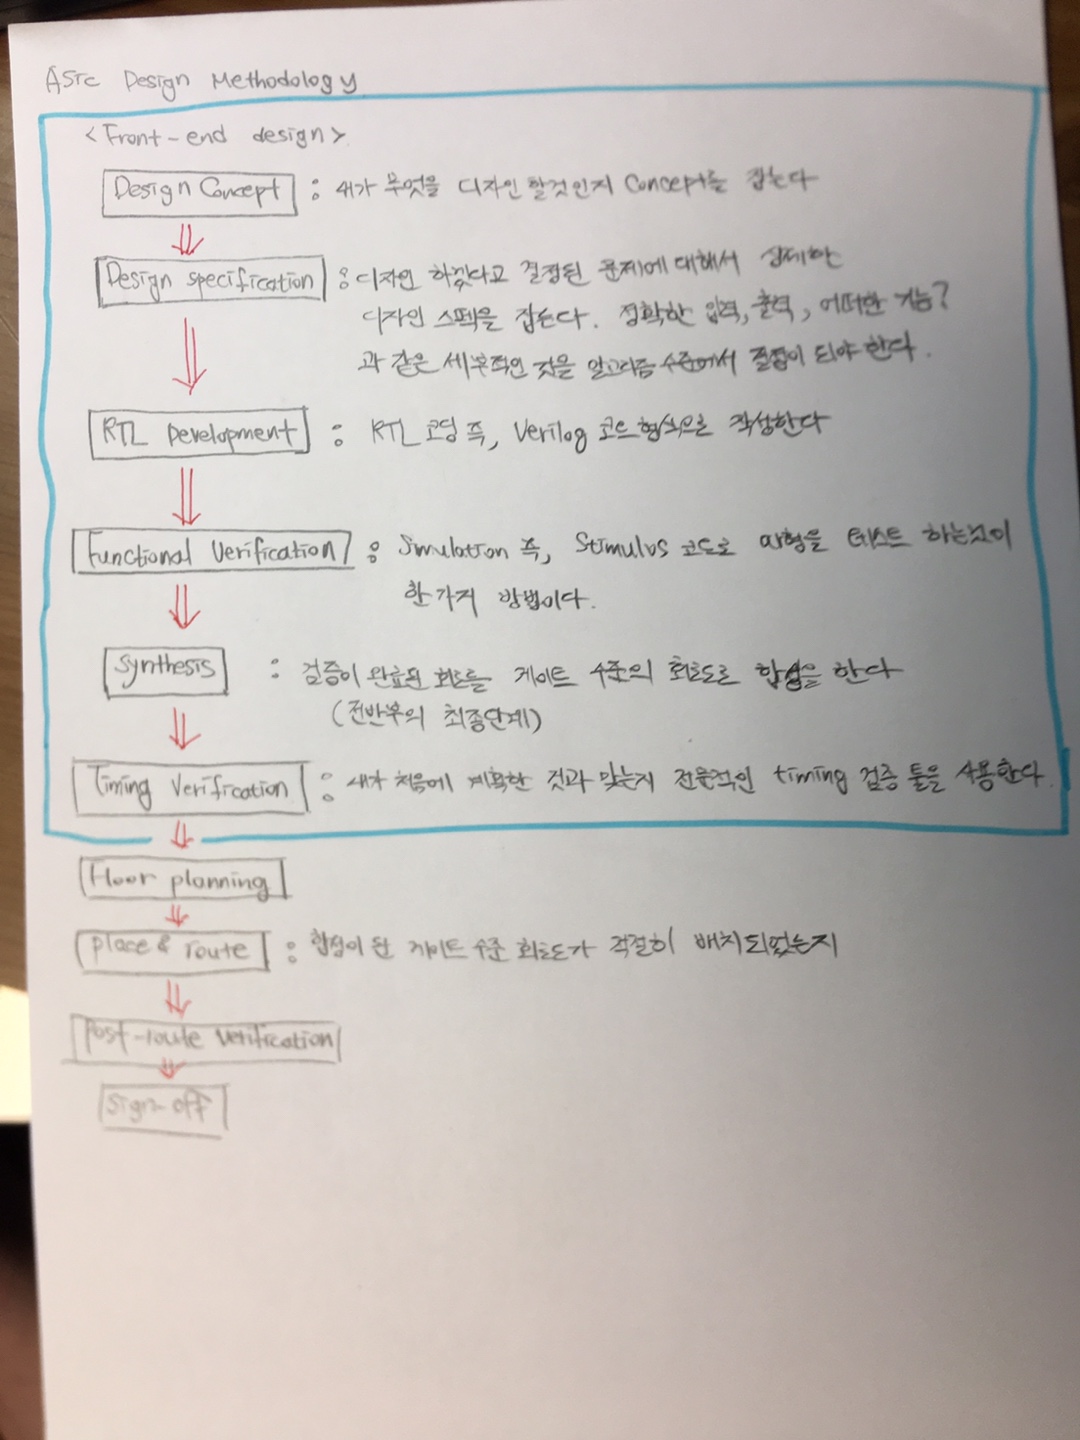 ASIC Design Methodology
<Front-end design>
Design Concept : 내가 무엇을 디자인 할것인지 Concept를 잡는다
Design specification : 디자인 하겠다고 결정된 문제에 대해서 상세한
디자인 스펙을 잡는다. 정확한 입력, 출력, 어떠한 기능?
과 같은 세부적인 것을 알고리즘 수준에서 결정이 되야 한다.
RTL Development : RTL 코딩 즉, Verilog 코드 형식으로 작성한다
Functional Verification : Simulation 즉, Stimulus 코드로 파형을 테스트 하는것이
한가지 방법이다.
Synthesis : 검증이 완료된 회로를 게이트 수준의 회로도로 합성을 한다
(전반부의 최종단계)
Timing Verification : 내가 처음에 계획한 것과 맞는지 전문적인 timing 검증 툴을 사용한다.
Floor planning
place & route : 합성이 된 게이트 수준 회로도가 적절히 배치되었는지
Post-route verification
Sign-off